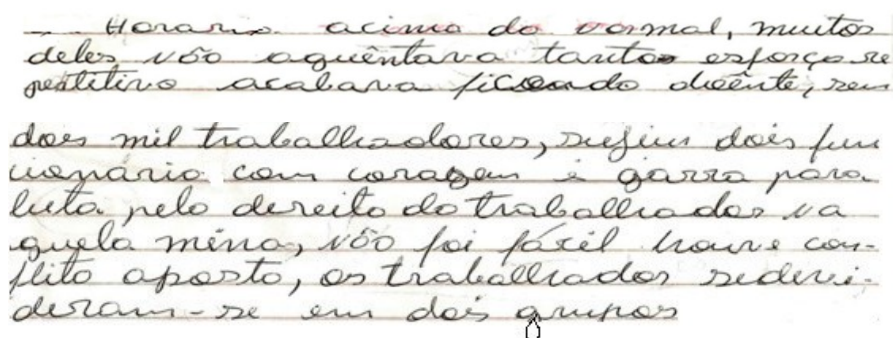 Horario acima do normal, muitos
deles não aguêntava tantos esforço re
petitivo acabava ficando doênte, seus
dois mil trabalhadores, sugiu dois fun
cionário com coragem e garra para
luta pelo direito do trabalhador na
quela mina, não foi fásil houve con-
flito aposto, os trabalhador sedevi-
deram-se em dois grupos